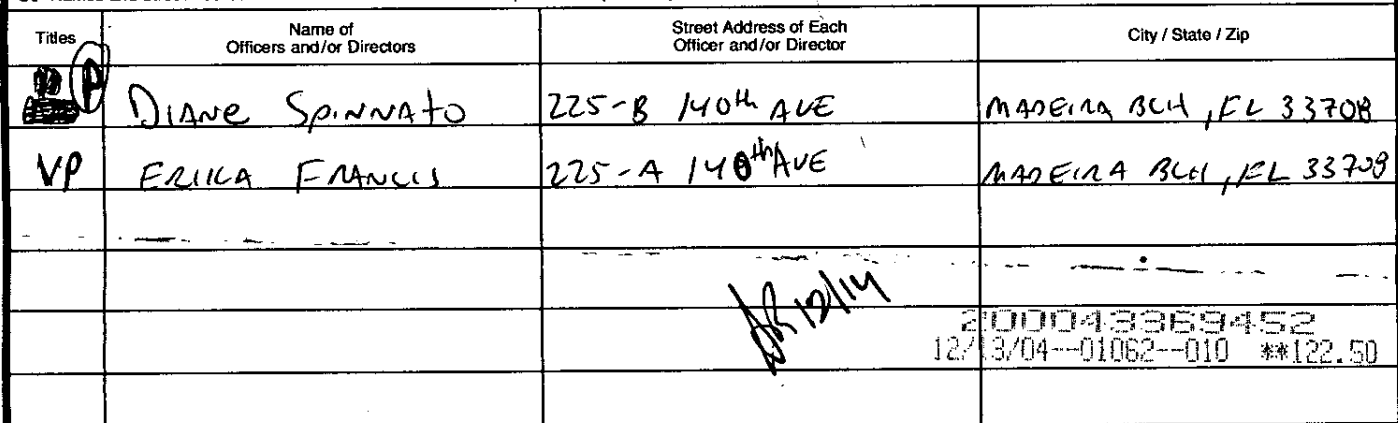 Titles Name of Officers and/or Directors Street Address of Each Officer and/or Director City / State / Zip
P DIANE SPINNATO 225-B 140th AVE MADEIRA BCH, FL 33708
VP ERIKA FRANCIS 225-A 140th AVE MADEIRA BCH, FL 33708
12/14
200043369452
12/13/04--01062--010 **122.50